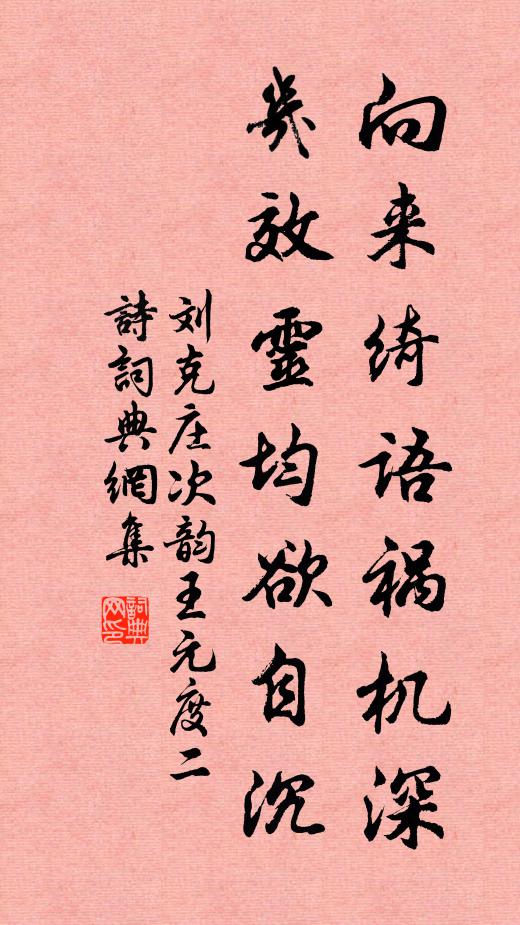 向来绮语祸机深
几效靈均欲自沉
刘克庄次韵王元度二
詩詞典網集
詞典网印